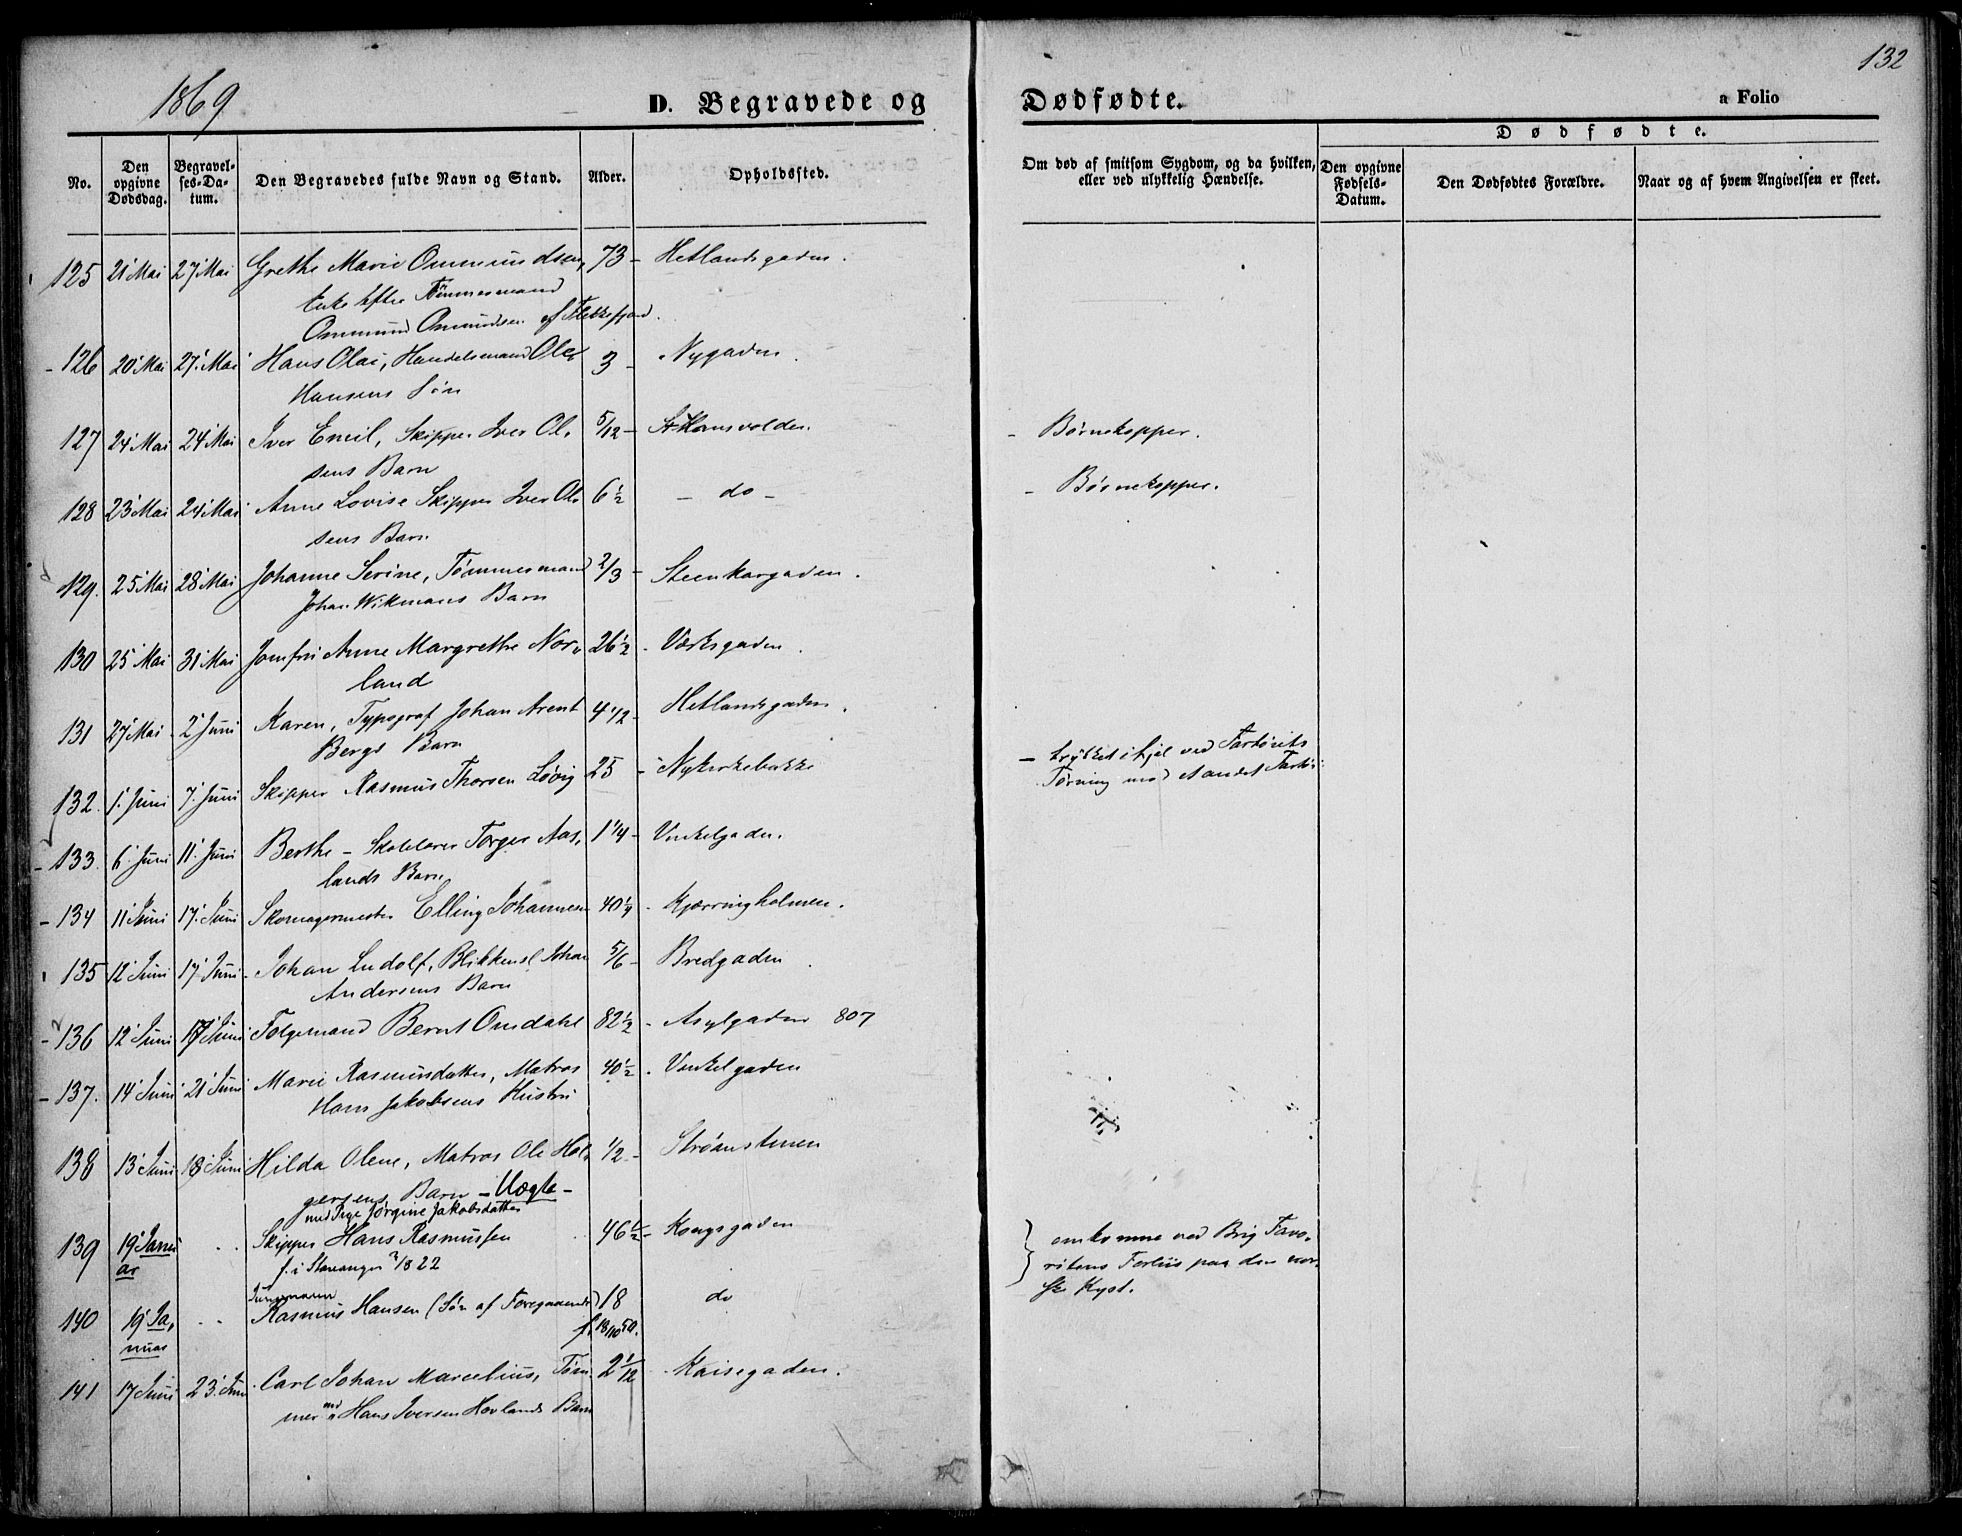 1869
132
D. Begravede og
Dødfødte.
a Folio
Dødfødte.
No.
Den opgivne Dødsdag.
Begravelses-Datum.
Den Begravedes fulde Navn og Stand.
Alder.
Opholdssted.
Om død af smitsom Sygdom, og da hvilken, eller ved ulykkelig Hændelse.
Den opgivne Fødsels-Datum.
Den Dødfødtes Forældre.
Naar og af hvem Angivelsen er skeet.
125 21 Mai 27 Mai Grethe Marie Ommundsen, 73 - Hetlandsgaden.
Enke efter Tømmermand
Ommund Omundsen af Flekkefjord.
126 20 Mai 27. Mai Hans Olai, Handelsmand Ole 3 - Nygaden.
Hansens Søn
127 24 Mai 24 Mai Iver Emil, Skipper Iver Ol- 5/12 - St Hansvolden. - Børnekopper.
sens Barn
128 23 Mai 24 Mai Anne Lovise Skipper Iver Ol- 6 1/2 - do - - Børnekopper.
sens Barn
129. 25 Mai 28 Mai Johanne Serine, Tømmermand 2/3 - Steenkargaden.
Johan Wikmans Barn
130 25 Mai 31 Mai Jomfru Anne Margrethe Nor- 26 1/2 - Værksgaden.
land
131 27 Mai 2 Juni Karen, Typograf Johan Arent 4 1/2 - Hetlandsgaden.
Bergs Barn
132. 1. Juni 7. Juni Skipper Rasmus Thorsen Løvig 25 - Nykirkebakke - trykket ihjel ved Fartøiets
Tørning mod et andet Fartøi
133 6. Juni 11. Juni Berthe - Skolelærer Torger Aas- 1 1/4 - Vinkelgaden.
lands Barn
134 11 Juni 17. Juni Skomagermester Elling Johannesen 40 1/4 - Kjærringholmen.
135 12 Juni 17 Juni Johan Ludolf, Blikkensl Johan 5/6 - Bredgaden
Andersens Barn
136 12 Juni 17 Juni Følgemand Bernt Omdahl 82 1/2 - Asylgaden 807
137. 14 Juni 21 Juni Marie Rasmusdatter, Matros 40 1/2 - Vinkelgaden
Hans Jakobsens Hustru
138 13 Juni 18 Juni Hilda Olene, Matros Ole Hol- 1/2 - Strømstenen
gersens Barn - Uægte -
med Pige Jørgine Jakobsdatter
139 19 Janu Skipper Hans Rasmussen 46 1/2 - Kongsgaden omkomne ved Brig Favo-
ar f. i Stavanger 1822 ritens Forliis paa den nor-
ske Kyst.
Jungmann
140 19 Ja- Rasmus Hansen (Søn af Foregaaende) 18 do
nuar f. 18/10 50.
141 17 Juni 23. Juni Carl Johan Marcelius, Tøm- 2 1/12 - Kaisegaden.
mermd Hans Iversen Hovlands Barn